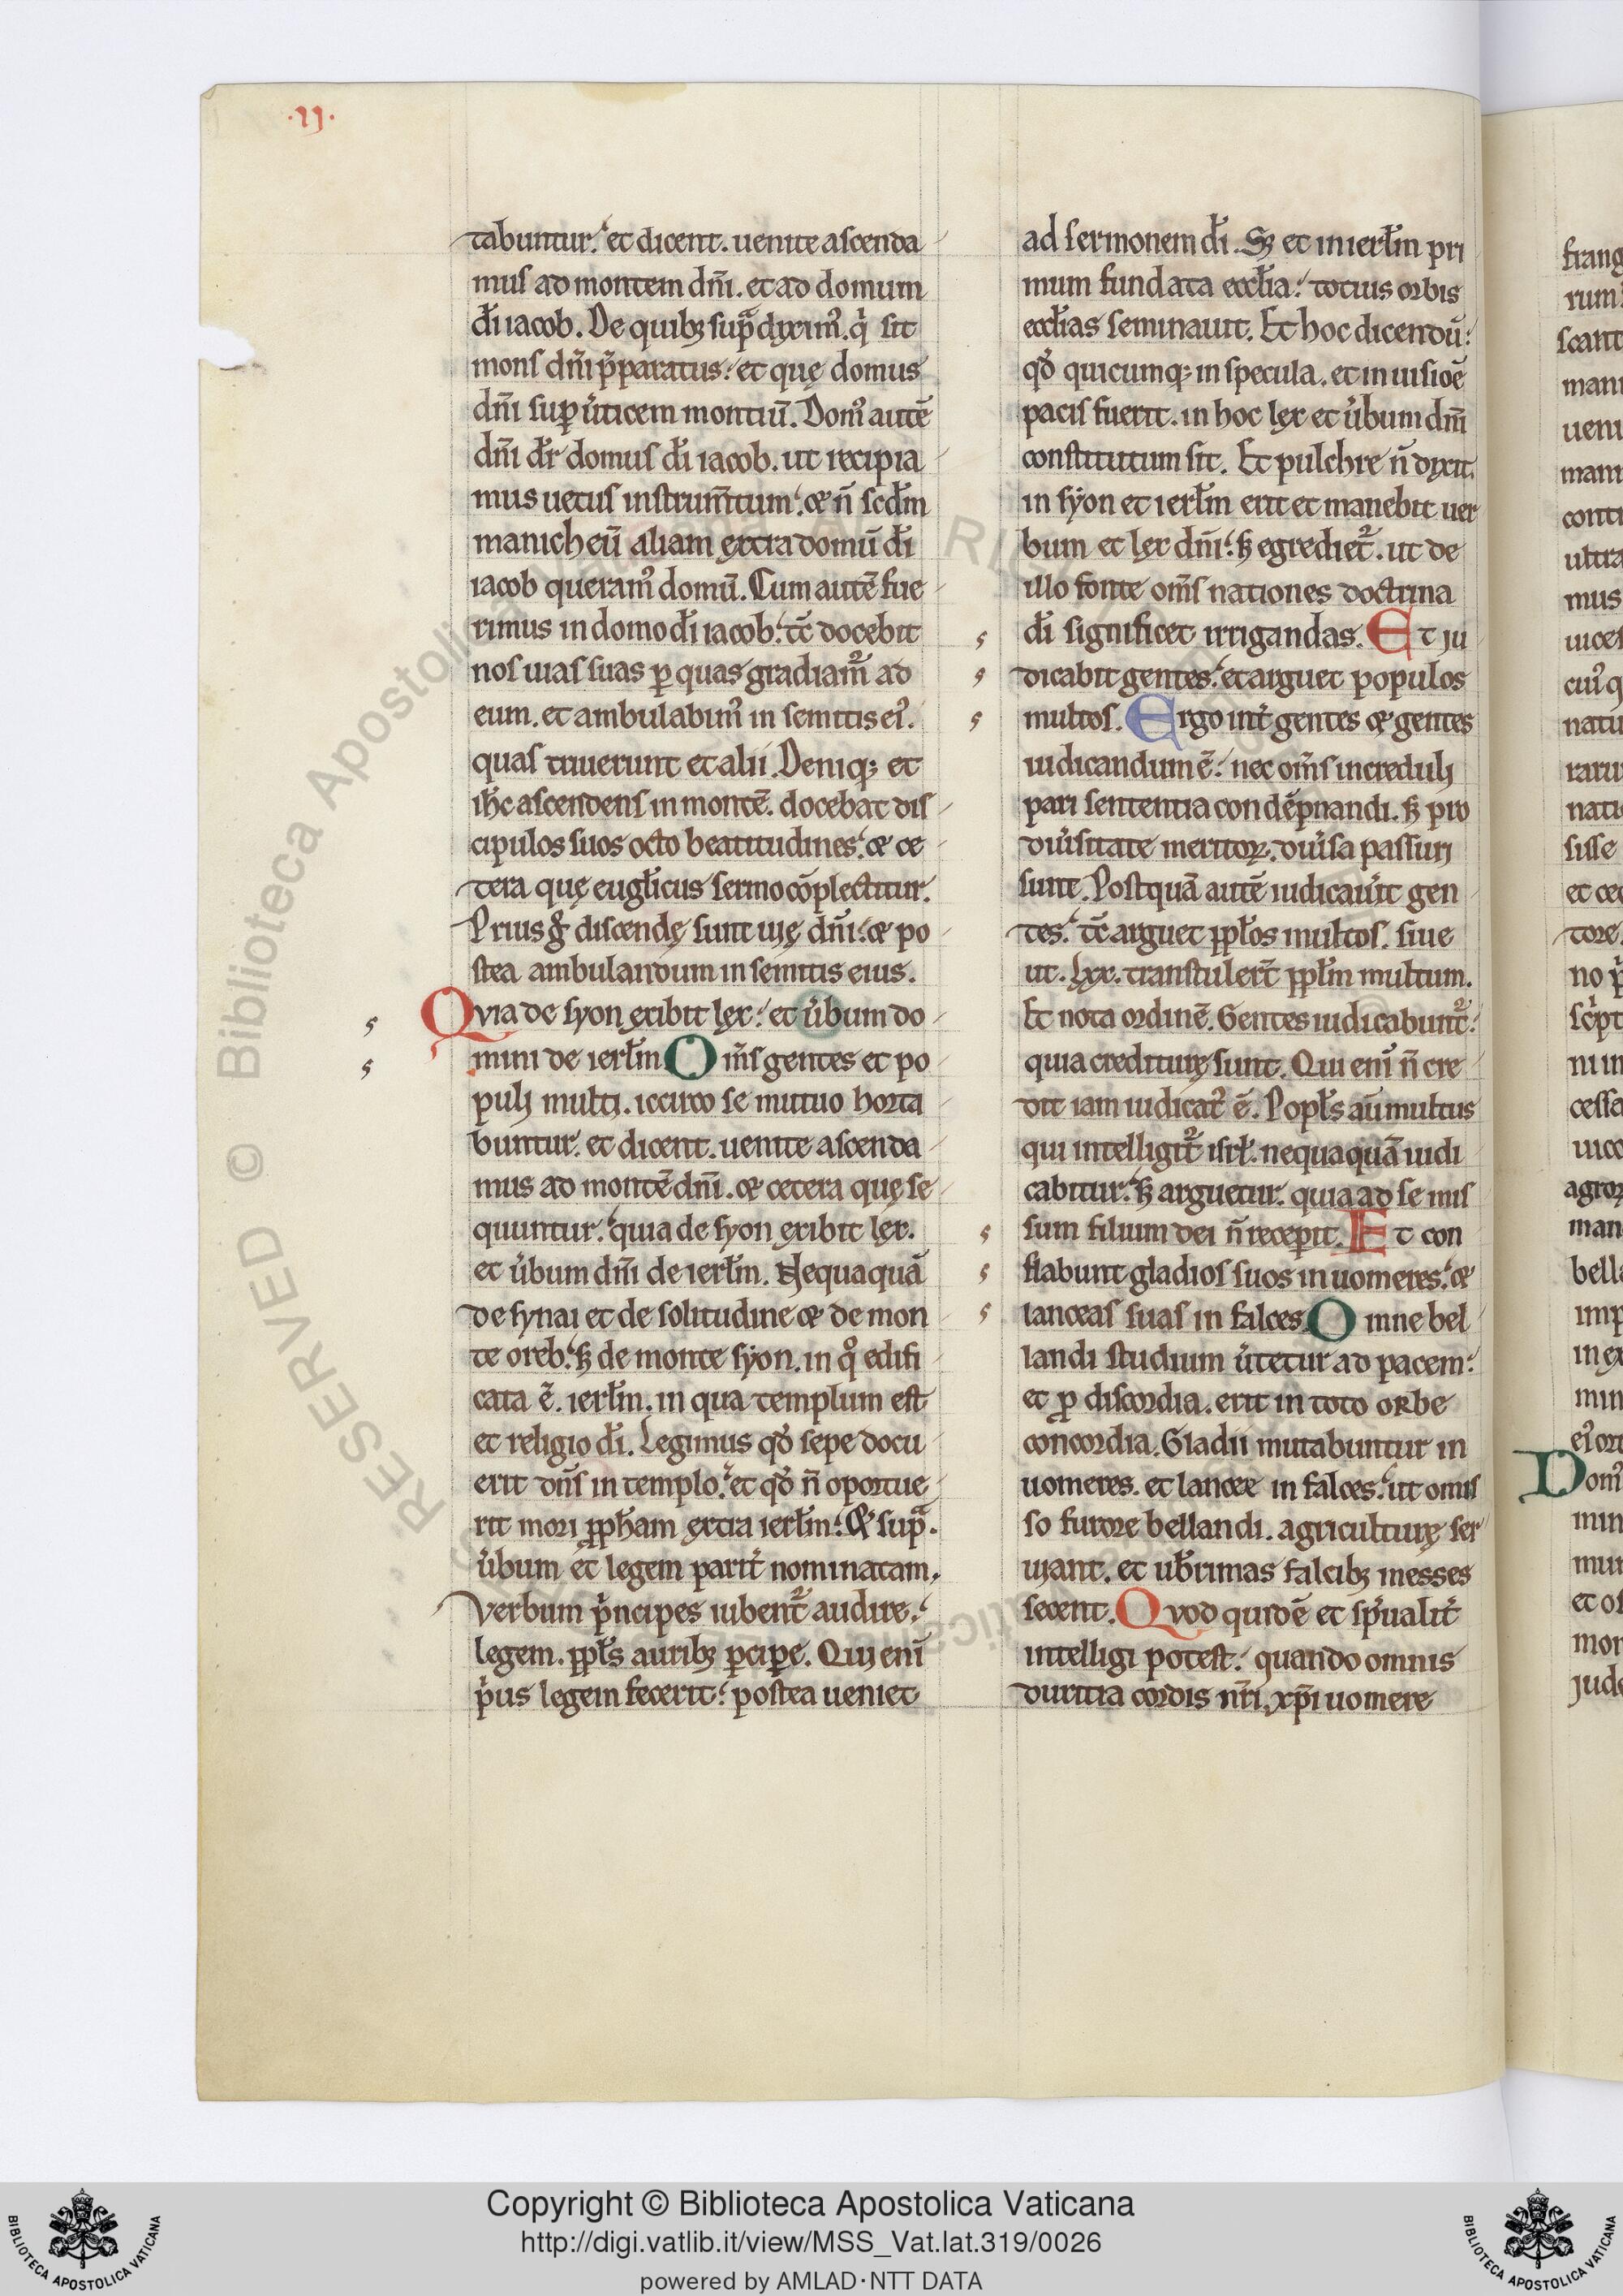 .II.
tabuntur. et dicent. uenite ascenda
mus ad montem dñi. et ad domum
dī iacob. De quibꝫ supᷓ diximꝰ. qͥ sit
mons dñi p̄paratus. et quę domus
dñi sup u̾ticem montiū. Domꝰ autē
dñi dr̄ domus dī iacob. ut recipia
mus uetus instrum̄tum. & n̄ scd̄m
manicheū aliam extra domū dī
iacob queramꝰ domū. Cum autē fue
rimus in domo dī iacob. tc̄ docebit
nos uias suas ꝑ quas gradiamᷣ ad
eum. et ambulabimꝰ in semitis eiꝰ.
quas triuerunt et alii. Deniqꝫ et
ih̄c ascendens in montē. docebat dis
cipulos suos octo beatitudines. & ce
tera quę eugl̄icus sermo cōplectitur.
Prius g̊ discendę sunt uię dñi. & po
stea ambulandum in semitis eius.
Quia de syon exibit lex. et u̾bum do
mini de ierl̄m. Om̄s gentes et po
puli multi. iccirco se mutuo horta
buntur. et dicent. uenite ascenda
mus ad montē dñi. & cetera quę se
quuntur. quia de syon exibit lex.
et u̾bum dm̄i de ierl̄m. Nequaquā
de synai et de solitudine & de mon
te oreb. sꝫ de monte syon. in qͦ edifi
cata ē. ierl̄m. in qua templum est
et religio dī. Legimus qd̄ sepe docu
erit dn̄s in templo. et qd̄ n̄ oportue
rit mori ꝓph̄am extra ierl̄m. & supᷓ.
u̾bum et legem parit̾ nominatam.
Verbum pͥncipes iubentᷣ audire.
legem. ppl̄s auribꝫ ꝑcipe. Qui eni
pͥus legem fecerit. postea ueniet
ad sermonem dī. Sꝫ et in ierl̄m pri
mum fundata eccl̄ia. totius orbis
eccl̄ias seminauit. Et hoc dicendū.
qd̄ quicumqꝫ in specula. et in uisiōe
pacis fuerit. in hoc lex et u̾bum dm̄i
constitutum sit. Et pulchre n̄ dixit.
in syon et ierl̄m erit et manebit uer
bum et lex dñi. sꝫ egredietᷣ. ut de
illo fonte om̄s nationes doctrina
dī significet irrigandas. Et iu
dicabit gentes. et arguet populos
multos. Ergo int̾ gentes & gentes
iudicandum ē. nec om̄s increduli
pari sententia condēpnandi. sꝫ pro
diu̾sitate meritoꝝ. diu̾sa passuri
sunt. Postquā autē iudicau̾it gen
tes. tc̄ arguet ppl̄os multos. siue
ut. lxx. transtuler̄t ppl̄m multum.
Et nota ordinē. Gentes iudicabuntᷣ.
quia crediturę sunt. Qui eni n̄ cre
dit iam iudicatꝰ ē. Popl̄s aū multus
qui intelligitᷣ isrl̄. nequaquā iudi
cabitur. sꝫ arguetur. quia ad se mis
sum filium dei n̄ recepit. Et con
flabunt gladios suos in uomeres. &
lanceas suas in falces. Omne bel
landi studium u̾tetur ad pacem.
et ꝓ discordia. erit in toto orbe
concordia. Gladii mutabuntur in
uomeres. et lanceę in falces. ut omis
so furore bellandi. agriculturę ser
uiant. et ub̄rimas falcibꝫ messes
secent. Quod quidē et sp̄ualit̾
intelligi potest. quando omnis
duritia cordis nr̄i. xp̄i uomere
Copyright © Biblioteca Apostolica Vaticana
http://digi.vatlib.it/view/MSS_Vat.lat.319/0026
powered by AMLAD·NTT DATA